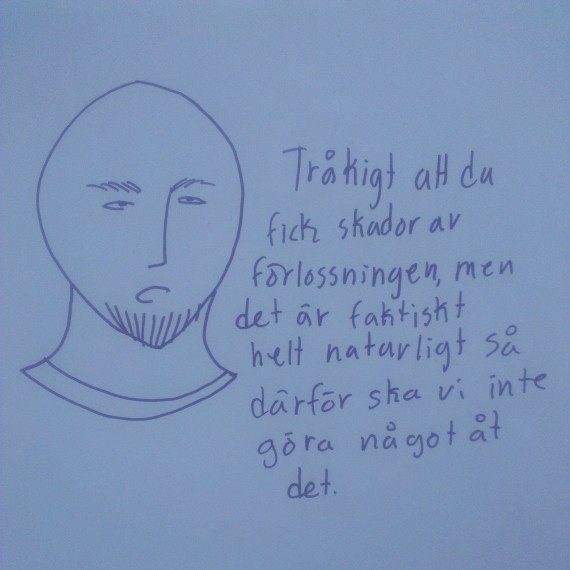 Tråkigt att du
fick skador av
förlossningen, men
det är faktiskt
helt naturligt så
därför ska vi inte
göra något åt
det.